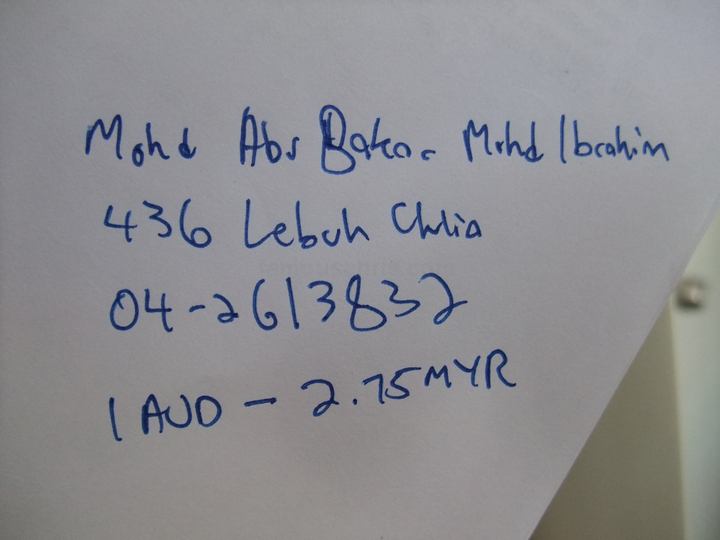 Mohd Abu Bakar Mohd Ibrahim
436 Lebuh Chulia
04-2613832
1 AUD - 2.75 MYR